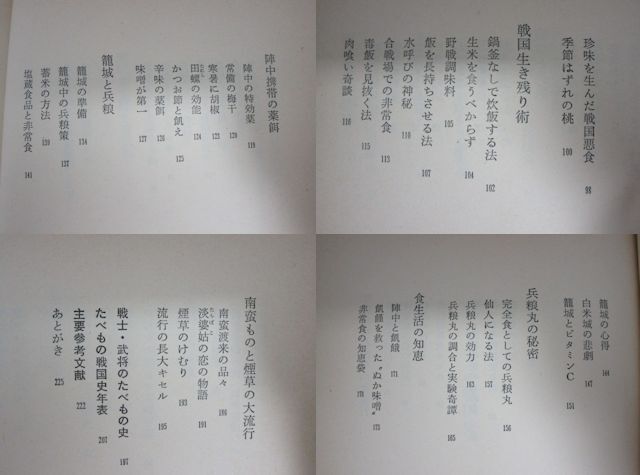 珍味を生んだ戦国悪食 98
季節はずれの桃 100
戦国生き残り術
鍋釜なしで炊飯する法 102
生米を食うべからず 104
野戦調味料 105
飯を長持ちさせる法 107
水呼びの神秘 110
合戦場での非常食 113
毒飯を見抜く法 115
肉喰い奇談 116
陣中携帯の薬餌
陣中の特効薬 119
常備の梅干 120
寒暑に胡椒 123
田螺の効能 124
かつお節と飢え 125
辛味の薬餌 126
味噌が第一 127
籠城と兵粮
籠城の準備 134
籠城中の兵粮策 137
蓄米の方法 139
塩蔵食品と非常食 141
籠城の心得 144
白米城の悲劇 147
籠城とビタミンC 151
兵粮丸の秘密
完全食としての兵粮丸 156
仙人になる法 157
兵粮丸の効力 163
兵粮丸の調合と実験奇譚 165
食生活の知恵
陣中と飢餓 171
飢饉を救った“ぬか味噌” 175
非常食の知恵袋 178
南蛮ものと煙草の大流行
南蛮渡来の品々 186
淡婆姑の恋の物語 191
煙草のけむり 193
流行の長大キセル 195
戦士・武将のたべもの史 197
たべもの戦国史年表 207
主要参考文献 222
あとがき 225